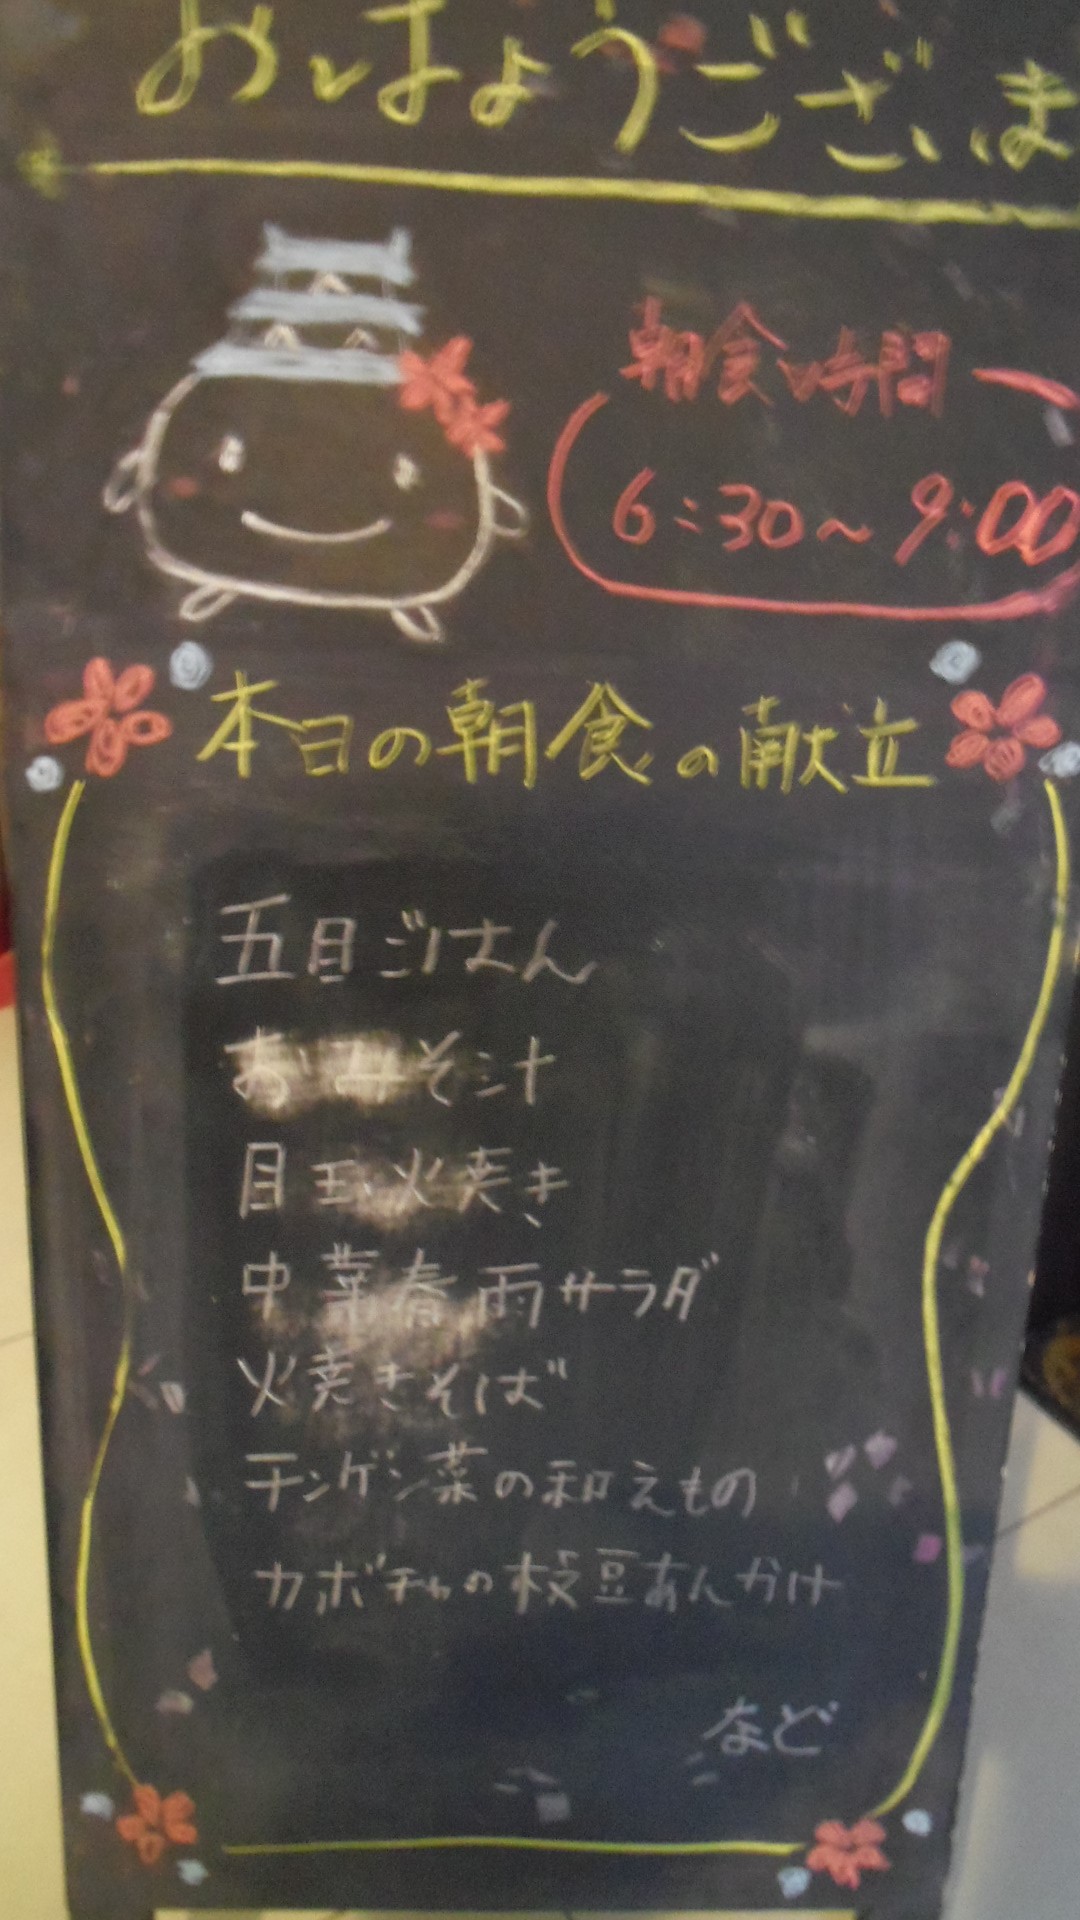 おはようございま
朝食時間
6:30〜9:00
本日の朝食の献立
五目ごはん
おみそ汁
目玉焼き
中菜春雨サラダ
焼きそば
チンゲン菜の和えもの
カボチャの枝豆あんかけ
など